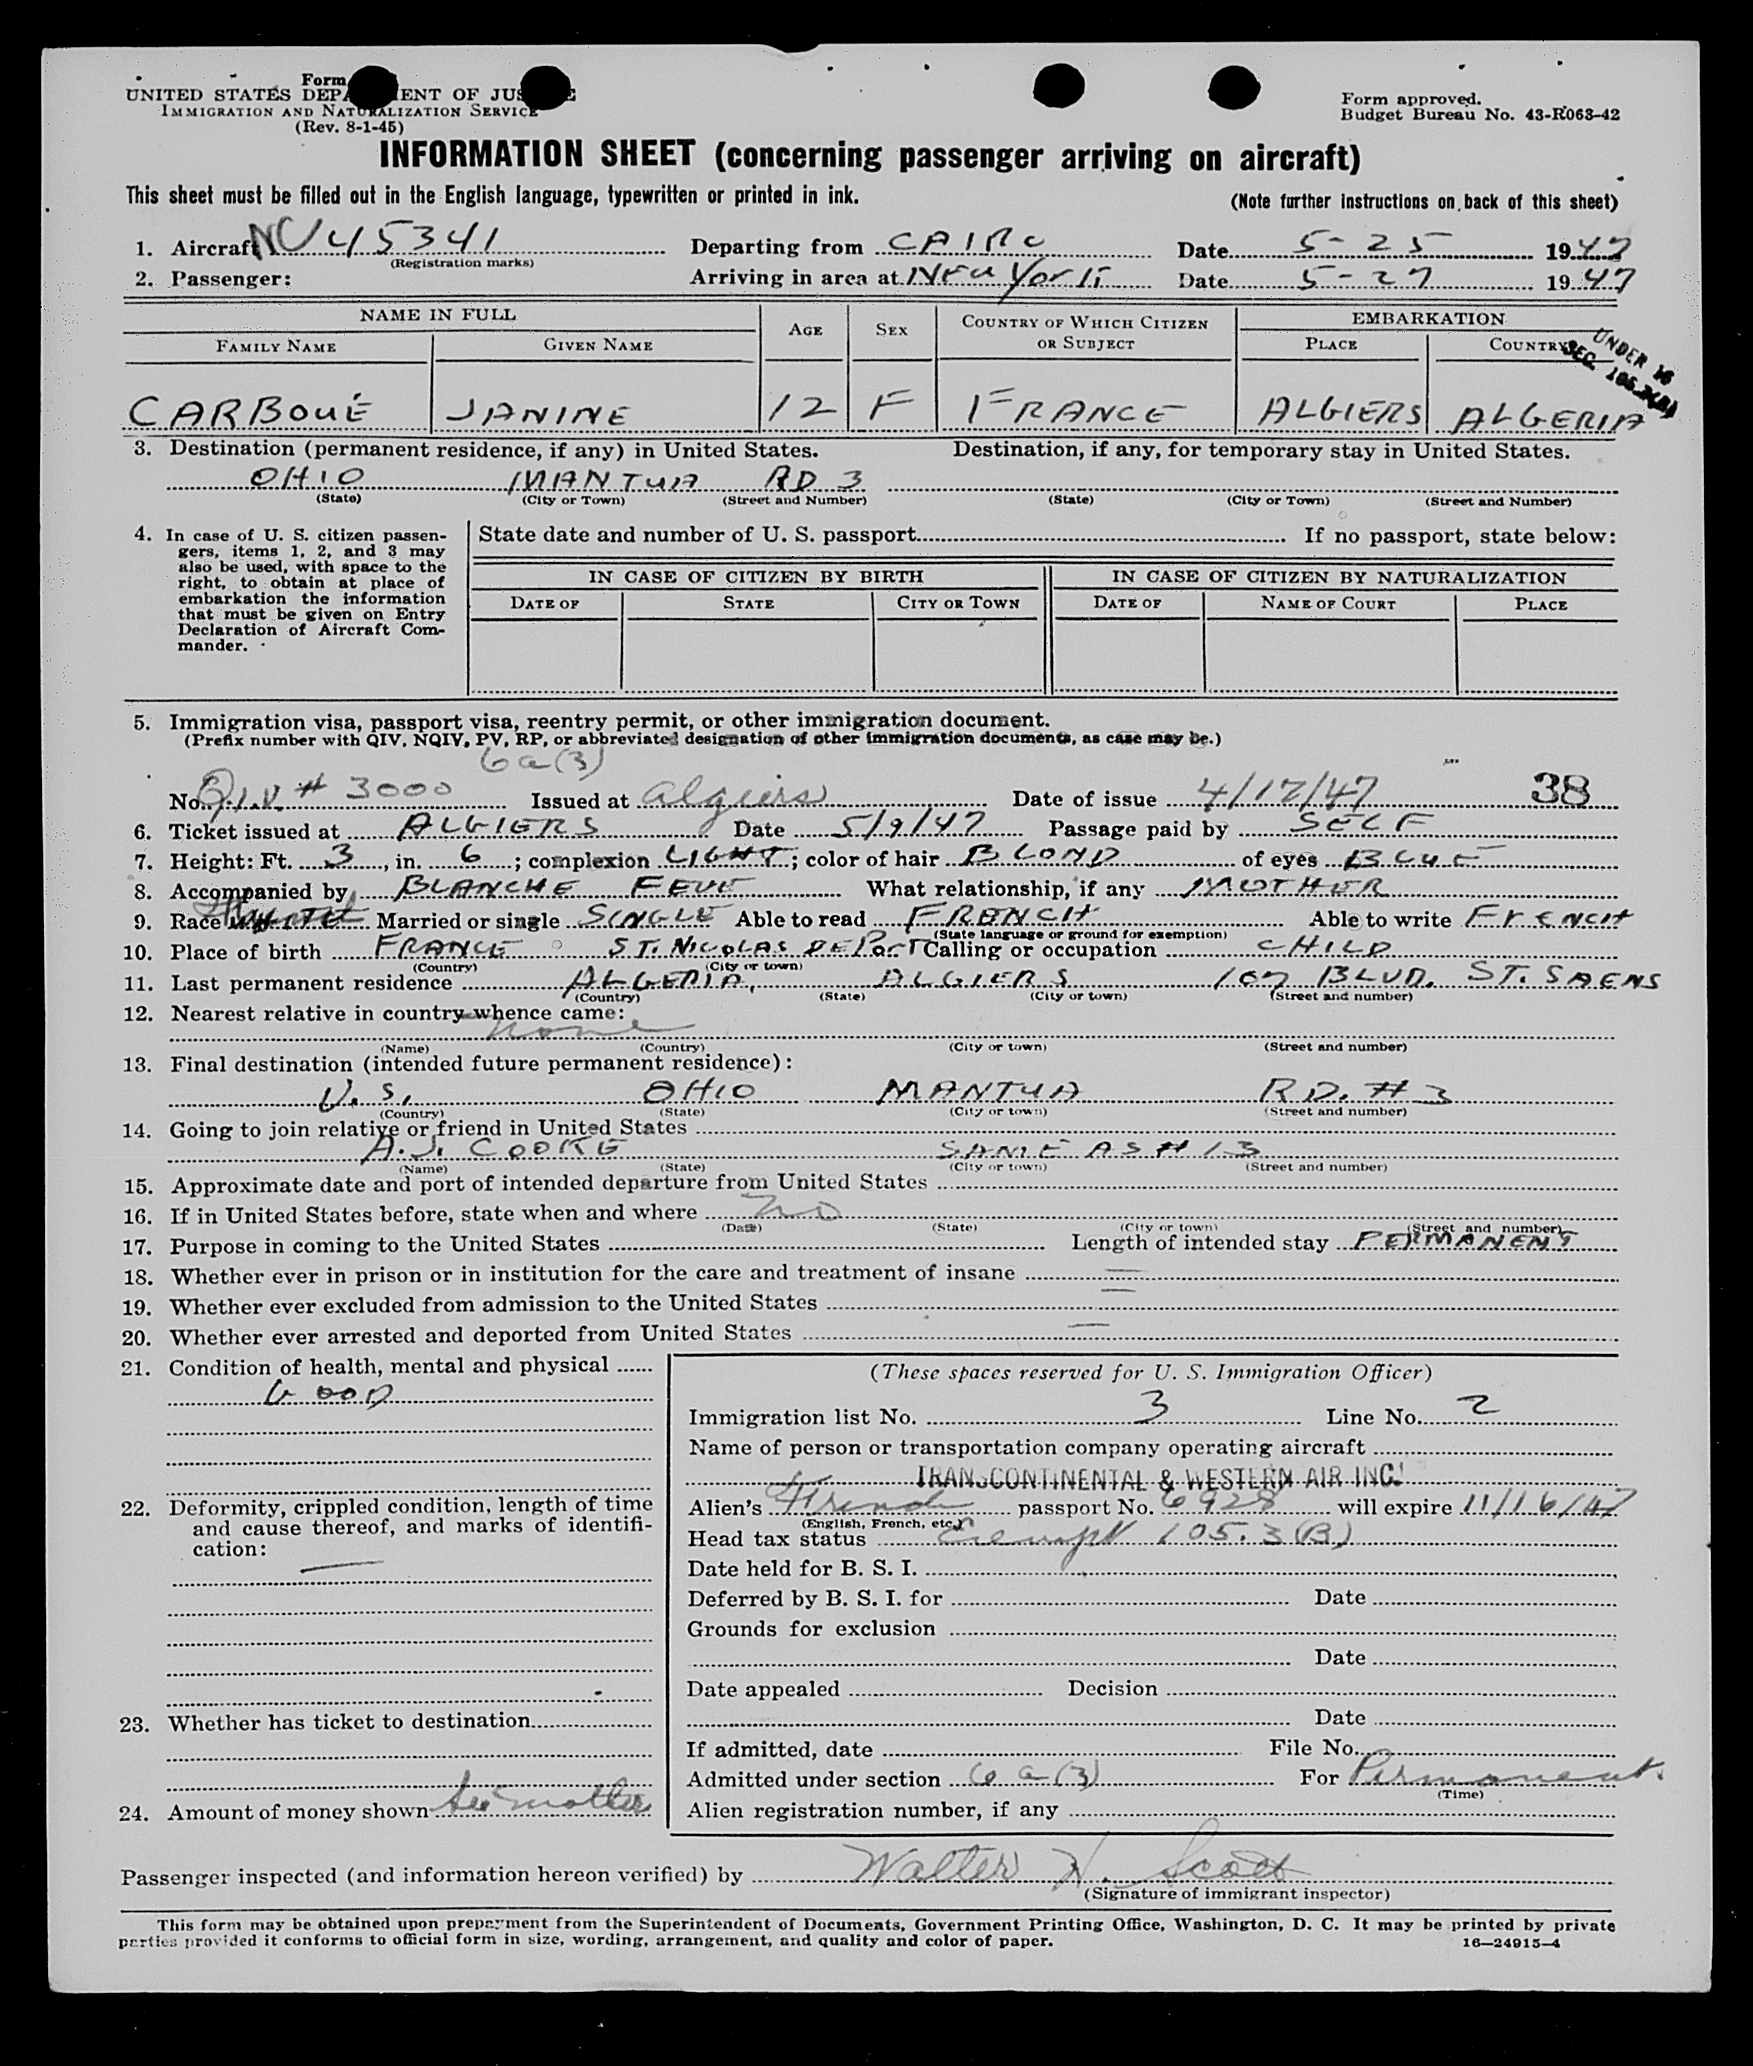 Form
UNITED STATES DEPA ENT OF JUS E
IMMIGRATION AND NATURALIZATION SERVICE
(Rev. 8-1-45)
Form approved.
Budget Bureau No. 43-R063-42
INFORMATION SHEET (concerning passenger arriving on aircraft)
This sheet must be filled out in the English language, typewritten or printed in ink.
(Note further instructions on back of this sheet)
1. Aircraft NC 45341 Departing from CAIRO Date 5-25 1947
(Registration marks)
2. Passenger: Arriving in area at New York Date 5-27 1947
NAME IN FULL AGE SEX COUNTRY OF WHICH CITIZEN OR SUBJECT EMBARKATION
FAMILY NAME GIVEN NAME PLACE COUNTRY
UNDER 16
SEC. 105.3(B)
CARBOUÉ JANINE 12 F FRANCE ALGIERS ALGERIA
3. Destination (permanent residence, if any) in United States. Destination, if any, for temporary stay in United States.
OHIO MANTUA RD 3
(State) (City or Town) (Street and Number) (State) (City or Town) (Street and Number)
4. In case of U. S. citizen passengers, items 1, 2, and 3 may
also be used, with space to the
right, to obtain at place of
embarkation the information
that must be given on Entry
Declaration of Aircraft Commander.
State date and number of U. S. passport If no passport, state below:
IN CASE OF CITIZEN BY BIRTH IN CASE OF CITIZEN BY NATURALIZATION
DATE OF STATE CITY OR TOWN DATE OF NAME OF COURT PLACE
5. Immigration visa, passport visa, reentry permit, or other immigration document.
(Prefix number with QIV, NQIV, PV, RP, or abbreviated designation of other immigration documents, as case may be.)
6a(3)
No. Q.I.V. # 3000 Issued at Algiers Date of issue 4/17/47 38
6. Ticket issued at ALGIERS Date 5/9/47 Passage paid by SELF
7. Height: Ft. 3, in. 6; complexion LIGHT; color of hair BLOND of eyes BLUE
8. Accompanied by BLANCHE FEVE What relationship, if any MOTHER
9. Race Married or single SINGLE Able to read FRENCH Able to write FRENCH
(State language or ground for exemption)
10. Place of birth FRANCE ST. NICOLAS DE PORT Calling or occupation CHILD
(Country) (City or town)
11. Last permanent residence ALGERIA, ALGIERS 107 BLVD. ST. SAENS
(Country) (State) (City or town) (Street and number)
12. Nearest relative in country whence came:
none
(Name) (Country) (City or town) (Street and number)
13. Final destination (intended future permanent residence):
U. S. OHIO MANTUA RD. #3
(Country) (State) (City or town) (Street and number)
14. Going to join relative or friend in United States
A. J. COOKE SAME AS #13
(Name) (State) (City or town) (Street and number)
15. Approximate date and port of intended departure from United States
16. If in United States before, state when and where no
(Date) (State) (City or town) (Street and number)
17. Purpose in coming to the United States Length of intended stay PERMANENT
18. Whether ever in prison or in institution for the care and treatment of insane —
19. Whether ever excluded from admission to the United States —
20. Whether ever arrested and deported from United States —
21. Condition of health, mental and physical
GOOD
22. Deformity, crippled condition, length of time
and cause thereof, and marks of identification:
—
23. Whether has ticket to destination
24. Amount of money shown See mother
(These spaces reserved for U. S. Immigration Officer)
Immigration list No. 3 Line No. 2
Name of person or transportation company operating aircraft
TRANSCONTINENTAL & WESTERN AIR INC.
Alien's French passport No. 6928 will expire 11/16/47
(English, French, etc.)
Head tax status Exempt 105.3(B)
Date held for B. S. I.
Deferred by B. S. I. for Date
Grounds for exclusion
Date
Date appealed Decision
Date
If admitted, date File No.
Admitted under section 6a(3) For Permanent
(Time)
Alien registration number, if any
Passenger inspected (and information hereon verified) by Walter H. Scott
(Signature of immigrant inspector)
This form may be obtained upon prepayment from the Superintendent of Documents, Government Printing Office, Washington, D. C. It may be printed by private
parties provided it conforms to official form in size, wording, arrangement, and quality and color of paper.
16—24915-4